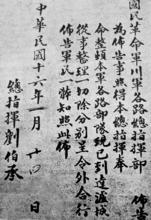 國民革命軍川軍各路總指揮 佈告
為佈告事照得本總指揮奉
命整頓本軍各路部隊現已到達瀘城
從事整理一切除分別呈令外合行
佈告軍民一體知照此佈
中華民國十六年一月十四日
總指揮劉伯承